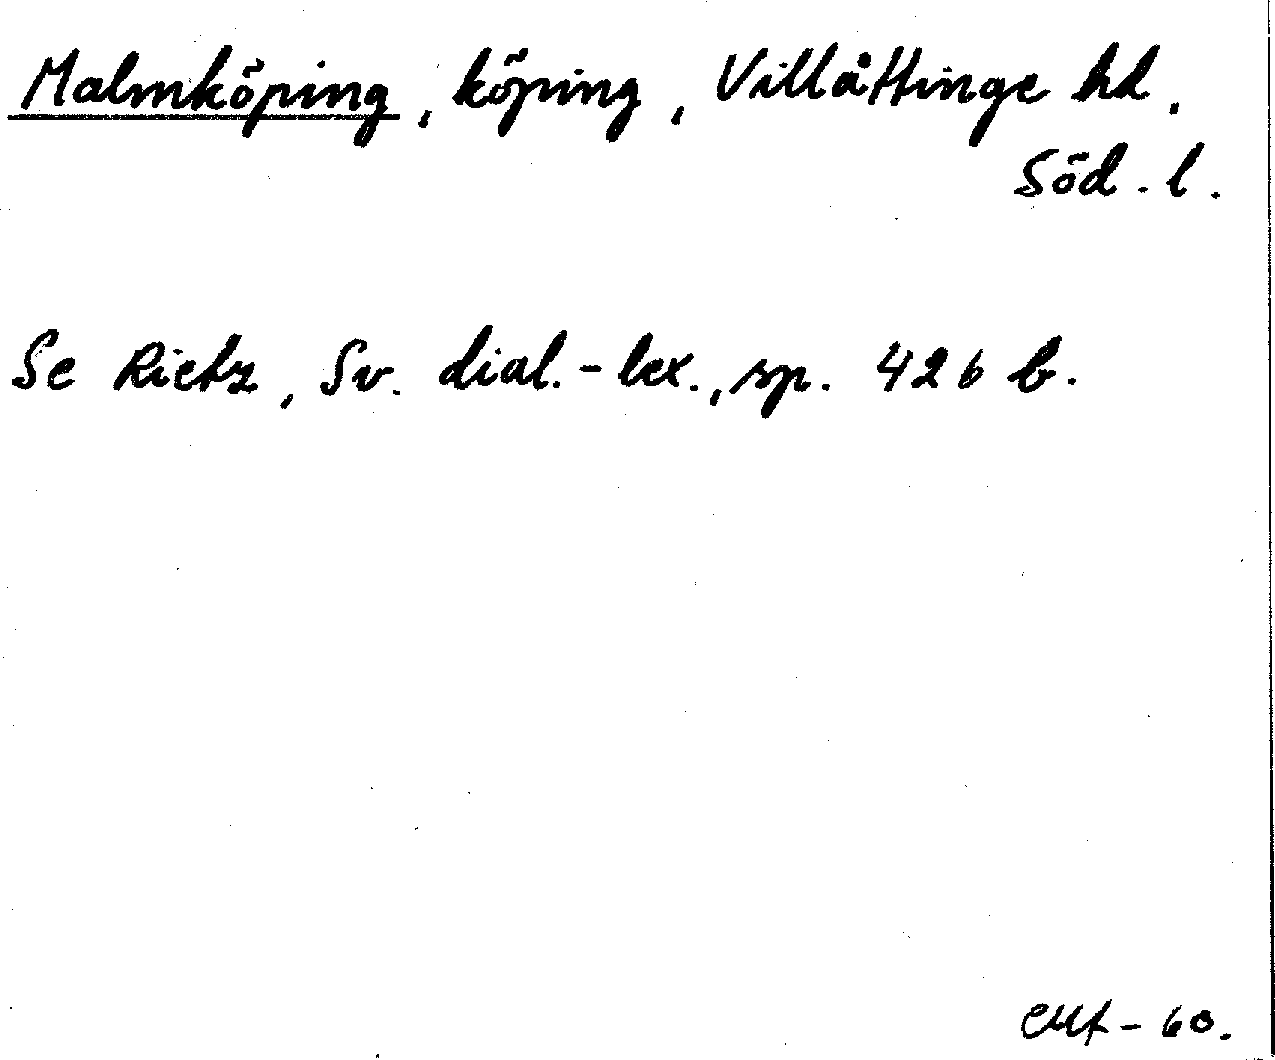 Malmköping, köping, Villåttinge hd.
Söd. l.
Se Rietz, Sv. dial.-lex., sp. 426 b.
-60.